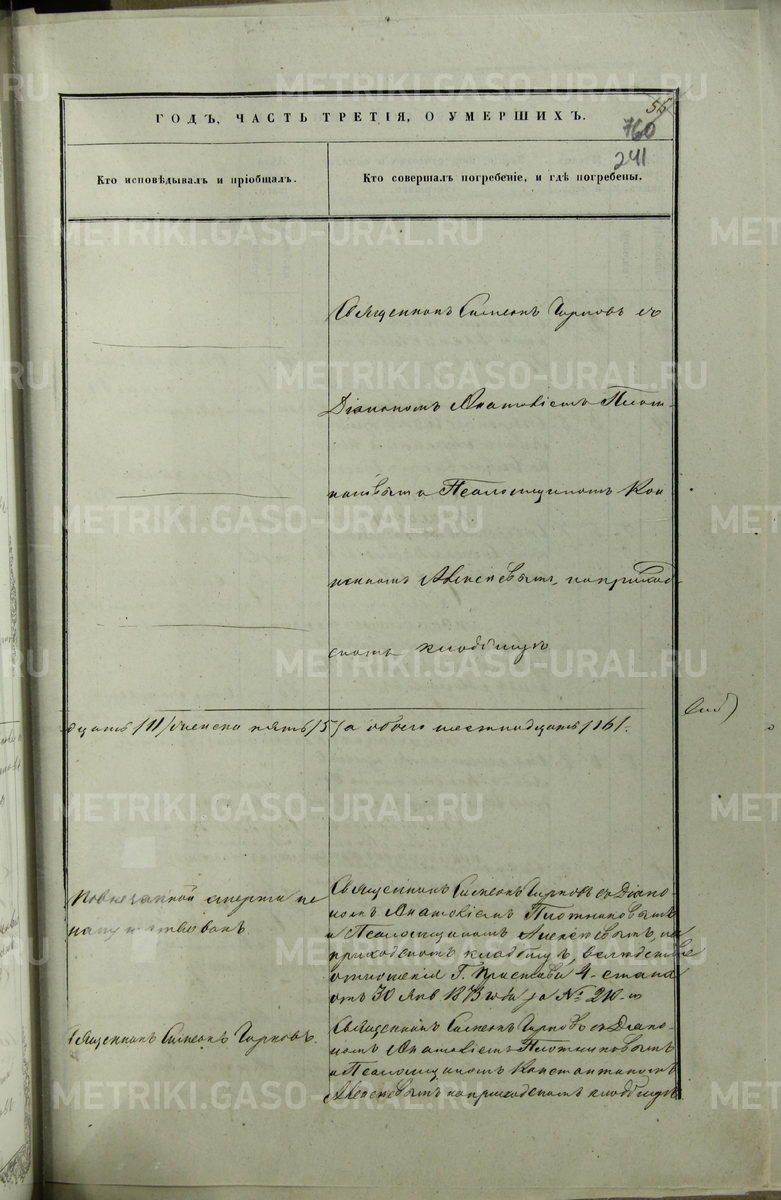 55
ГОДЪ, ЧАСТЬ ТРЕТІЯ, О УМЕРШИХЪ.
760
241
Кто исповѣдывалъ и пріобщалъ.
Кто совершалъ погребеніе, и гдѣ погребены.
Священникъ Симеонъ съ
Діакономъ Анатоліемъ Плот-
никовымъ и Псаломщикомъ Кон
Алексѣевымъ, на приход-
скомъ кладбищѣ
дцать /11/ женска пять /5/ а обоего шестнадцать /16/.
По внезапной смерти не
напутствованъ
Священникъ Симеонъ съ Діако-
номъ Анатоліемъ Плотниковымъ
и Псаломщикомъ Алексѣевымъ, на
приходскомъ кладбищѣ, вслѣдствіе
отношенія Г. Пристава 4 стана
отъ 30 Янв 1873 года за № 210-м
Священникъ Симеонъ
Священникъ Симеонъ съ Діако-
номъ Анатоліемъ Плотниковымъ
и Псаломщикомъ Константиномъ
Алексѣевымъ на приходскомъ кладбищѣ
METRIKI.GASO-URAL.RU